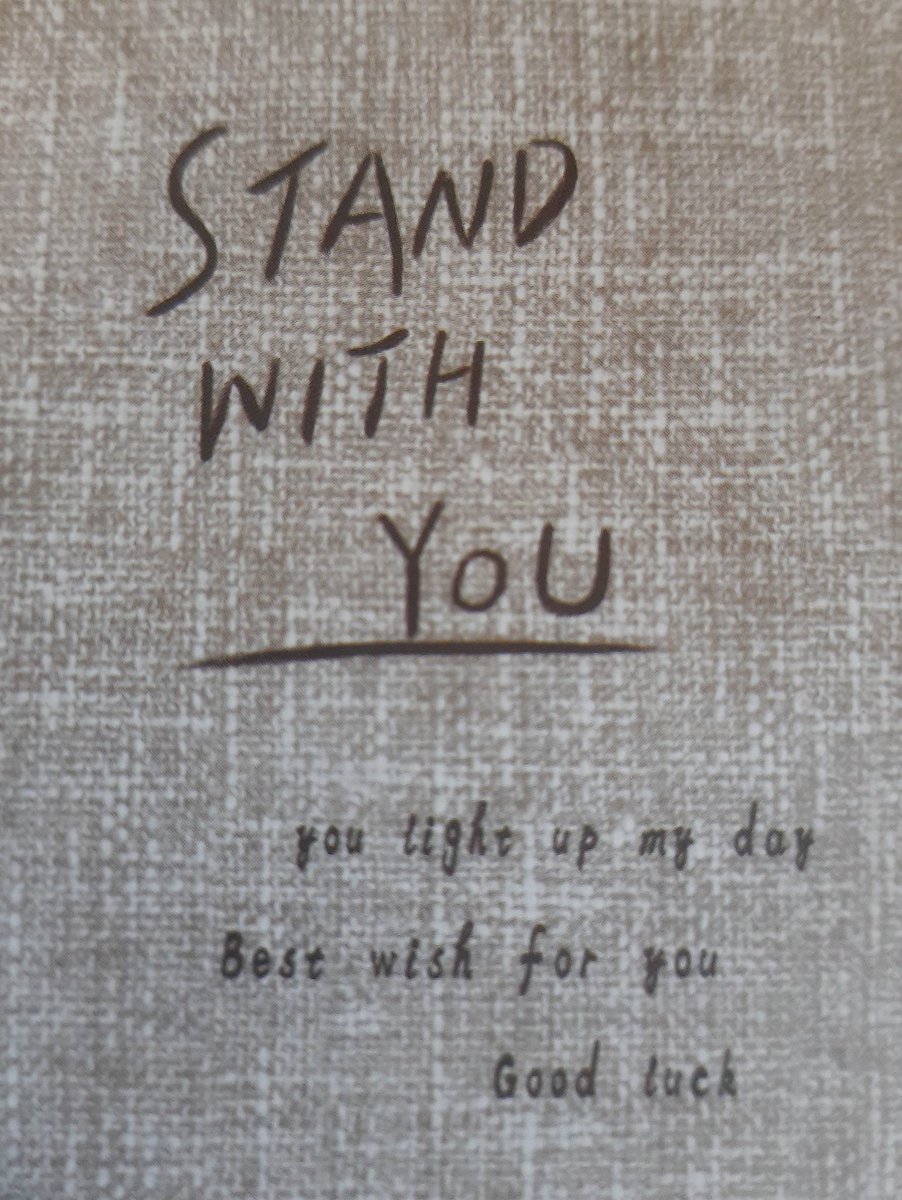 STAND
WITH
YoU
you light up my day
Best wish for you
Good luck